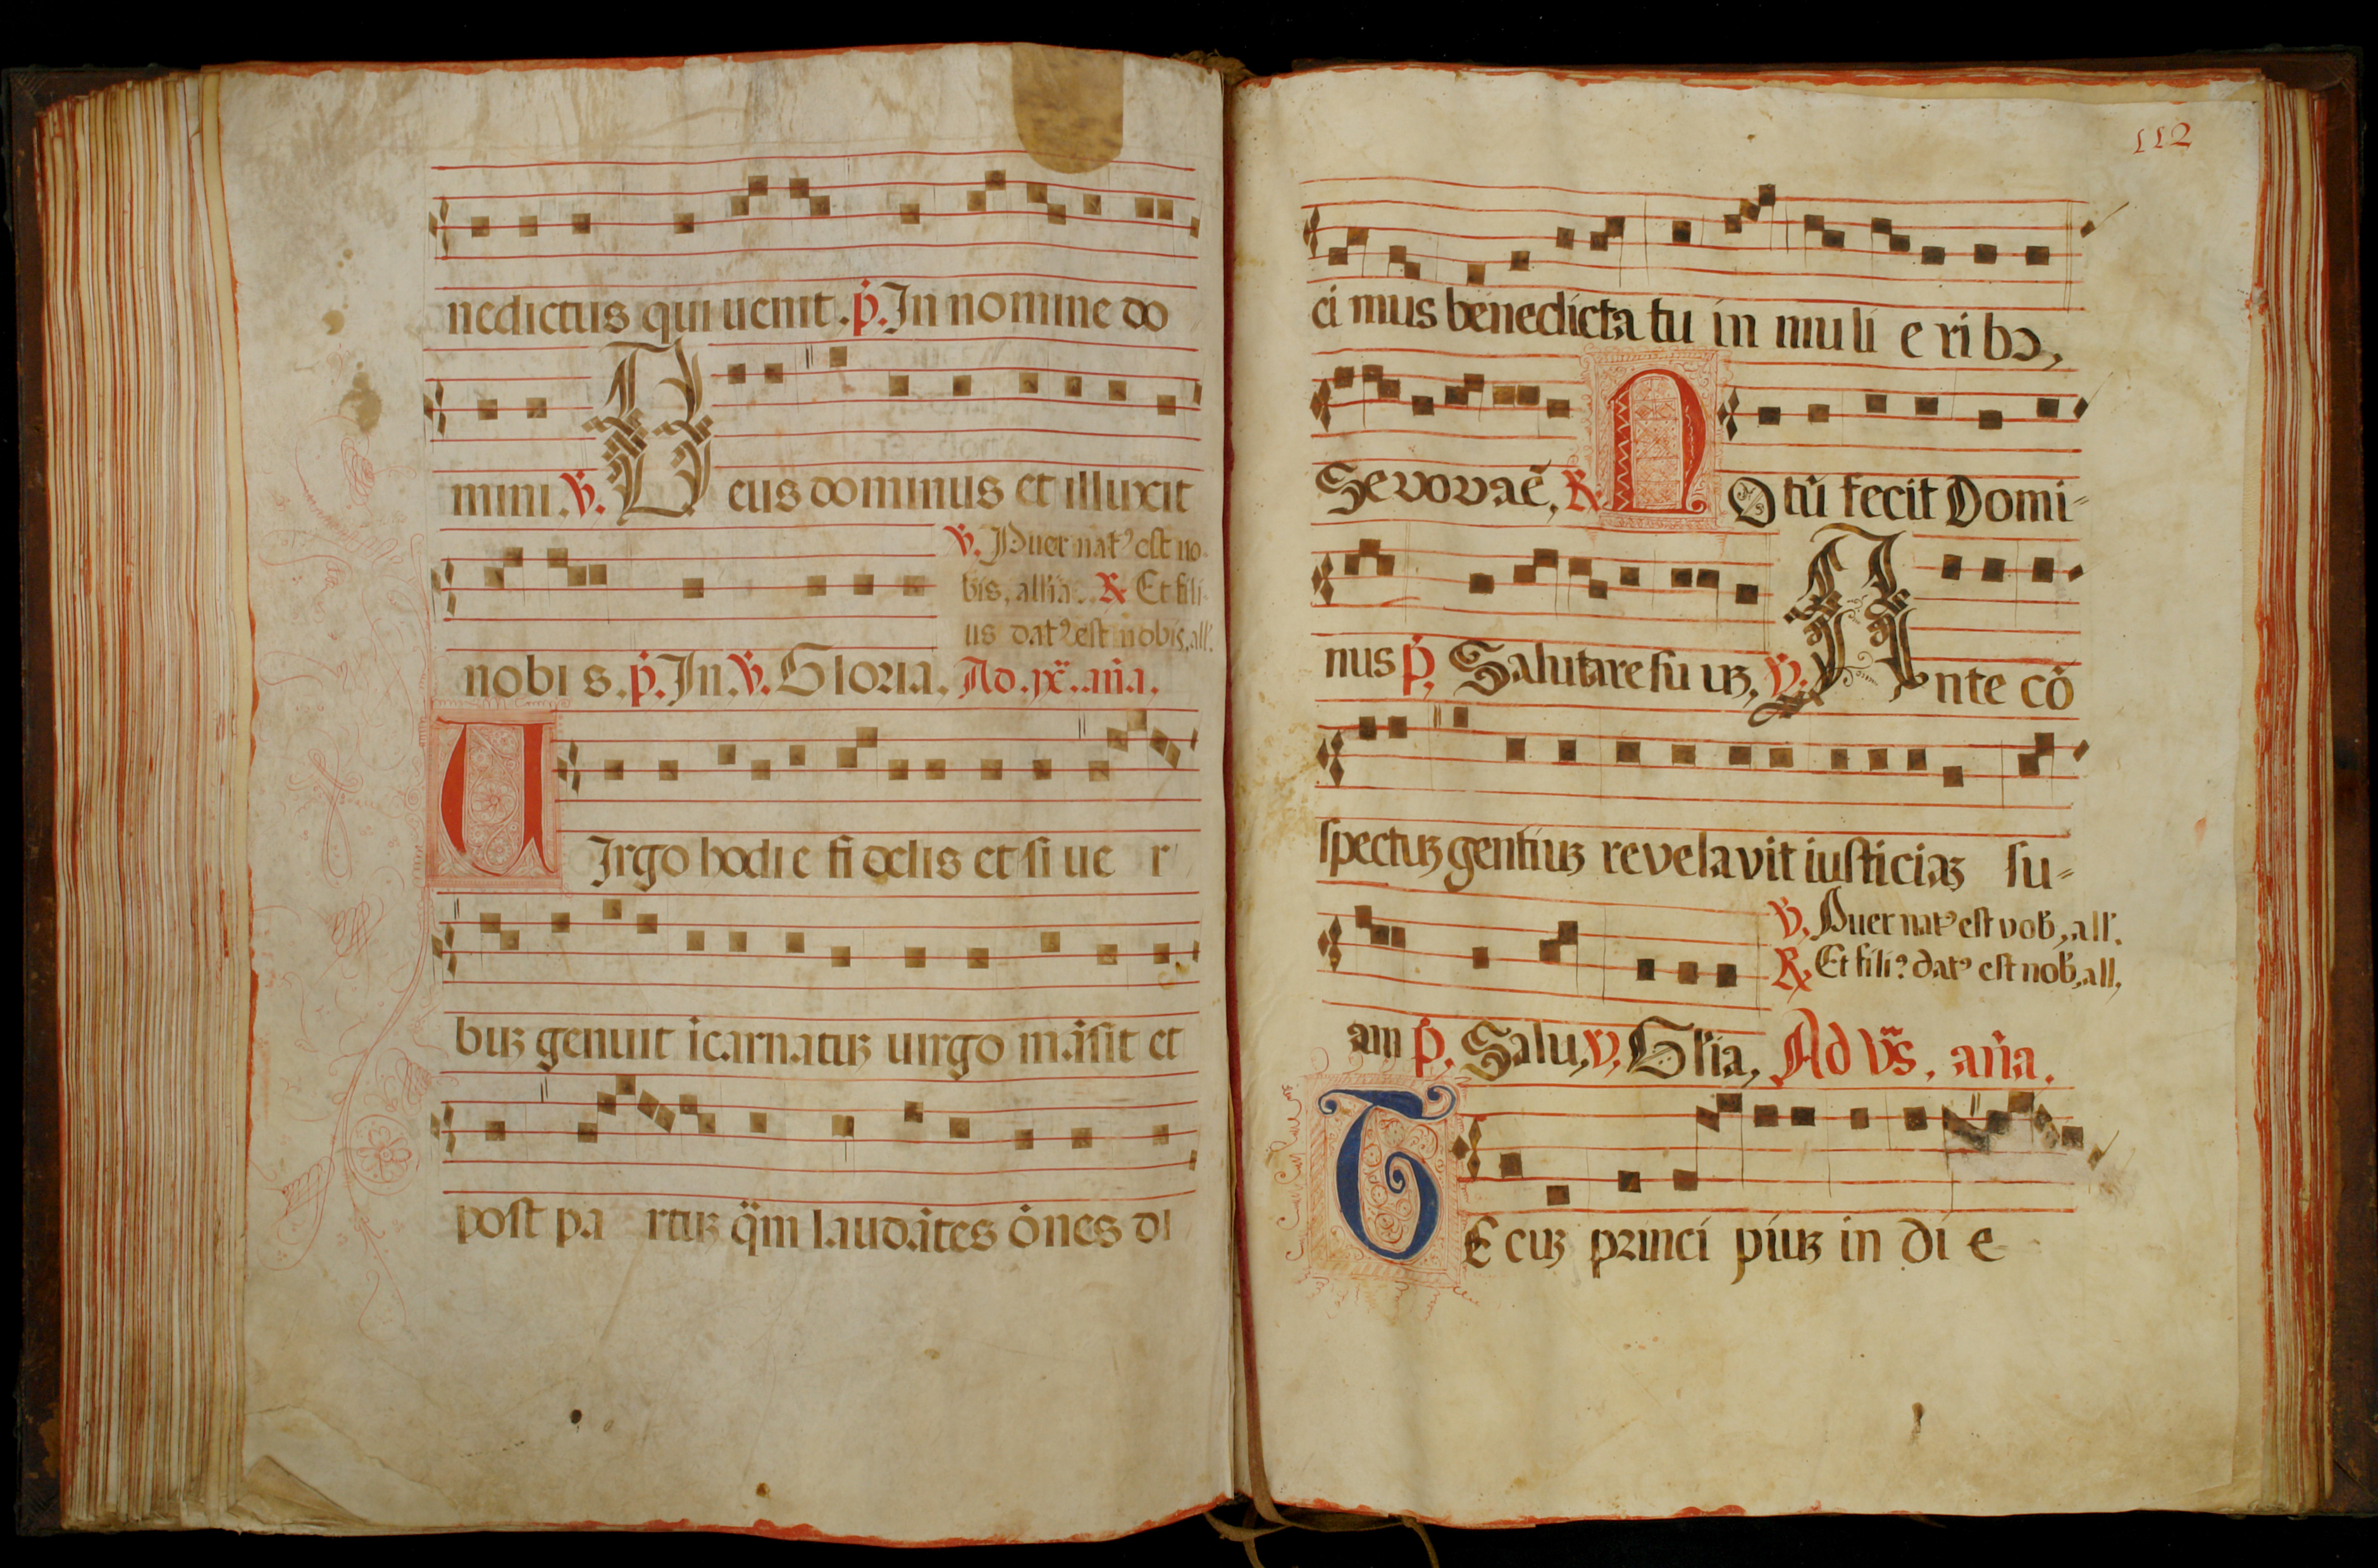 nedictus qui uenit . p̄. In nomine do
mini . v̄. Deus dominus et illuxit
v̄. Puer natꝰ est no
bis, allīa. . ℟ Et fili
us datꝰ est nobis, all'.
nobis . p̄. In . v̄. Gloria. Ad . jx̄. . an̄a.
UIrgo hodie fidelis et si ue r
buꝫ genuit īcarnatuꝫ uirgo māsit et
post pa rtuꝫ q̄m laudātes ōnes di
112
ci mus benedicta tu in muli e ri bꝯ,
Sevovaē, ℟. NOtū fecit Domi=
nus p̄. Salutare su uꝫ, v̄. Ante cō
spectuꝫ gentiuꝫ revelavit iusticiaꝫ su=
v̄. Puer natꝰ est vob̄, all'.
℟. Et filiꝰ datꝰ est nob̄, all,
am p̄. Salu, v̄. Gl'ia, Ad vr̄s, an̄a.
TE cuꝫ princi piuꝫ in di e